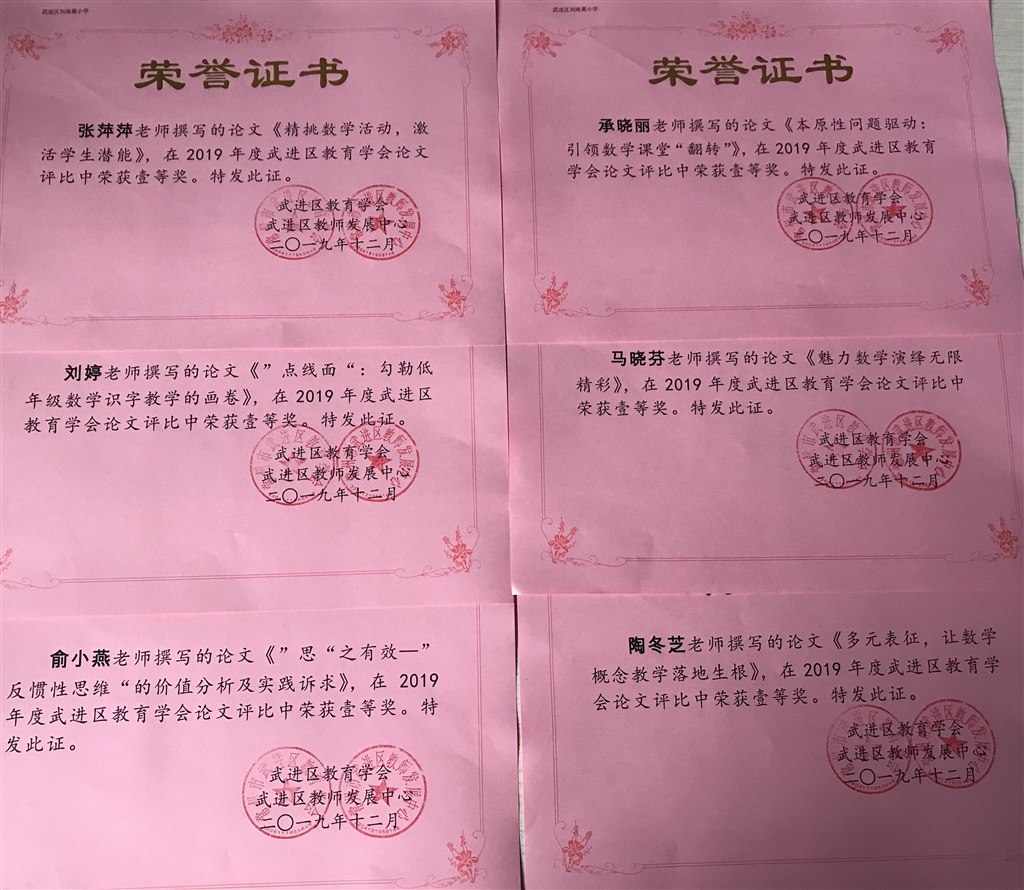 武进区刘海粟小学
荣誉证书
张萍萍老师撰写的论文《精挑数学活动，激
活学生潜能》，在 2019 年度武进区教育学会论文
评比中荣获壹等奖。特发此证。
武进区教育学会
武进区教师发展中心
二〇一九年十二月
武进区刘海粟小学
荣誉证书
承晓丽老师撰写的论文《本原性问题驱动：
引领数学课堂“翻转”》，在 2019 年度武进区教育
学会论文评比中荣获壹等奖。特发此证。
武进区教育学会
武进区教师发展中心
二〇一九年十二月
刘婷老师撰写的论文《”点线面“：勾勒低
年级数学识字教学的画卷》，在 2019 年度武进区
教育学会论文评比中荣获壹等奖。特发此证。
武进区教育学会
武进区教师发展中心
二〇一九年十二月
马晓芬老师撰写的论文《魅力数学演绎无限
精彩》，在 2019 年度武进区教育学会论文评比中
荣获壹等奖。特发此证。
武进区教育学会
武进区教师发展中心
二〇一九年十二月
俞小燕老师撰写的论文《”思“之有效—”
反惯性思维“的价值分析及实践诉求》，在 2019
年度武进区教育学会论文评比中荣获壹等奖。特
发此证。
武进区教育学会
武进区教师发展中心
二〇一九年十二月
陶冬芝老师撰写的论文《多元表征，让数学
概念教学落地生根》，在 2019 年度武进区教育学
会论文评比中荣获壹等奖。特发此证。
武进区教育学会
武进区教师发展中心
二〇一九年十二月